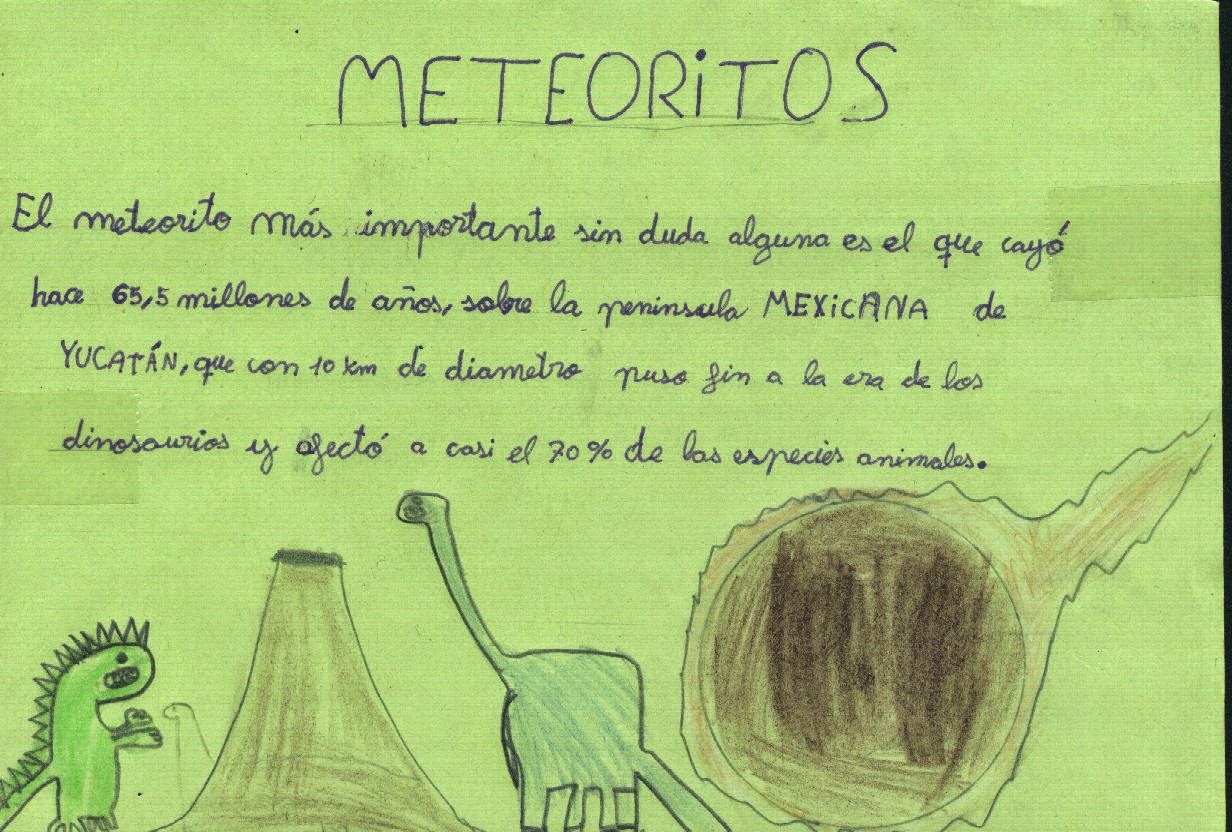 METEORiTOS
El meteorito más importante sin duda alguna es el que cayó
hace 65,5 millones de años, sobre la península MEXiCANA de
YUCATÁN, que con 10 km de diametro puso fin a la era de los
dinosaurios y afectó a casi el 70% de las especies animales.